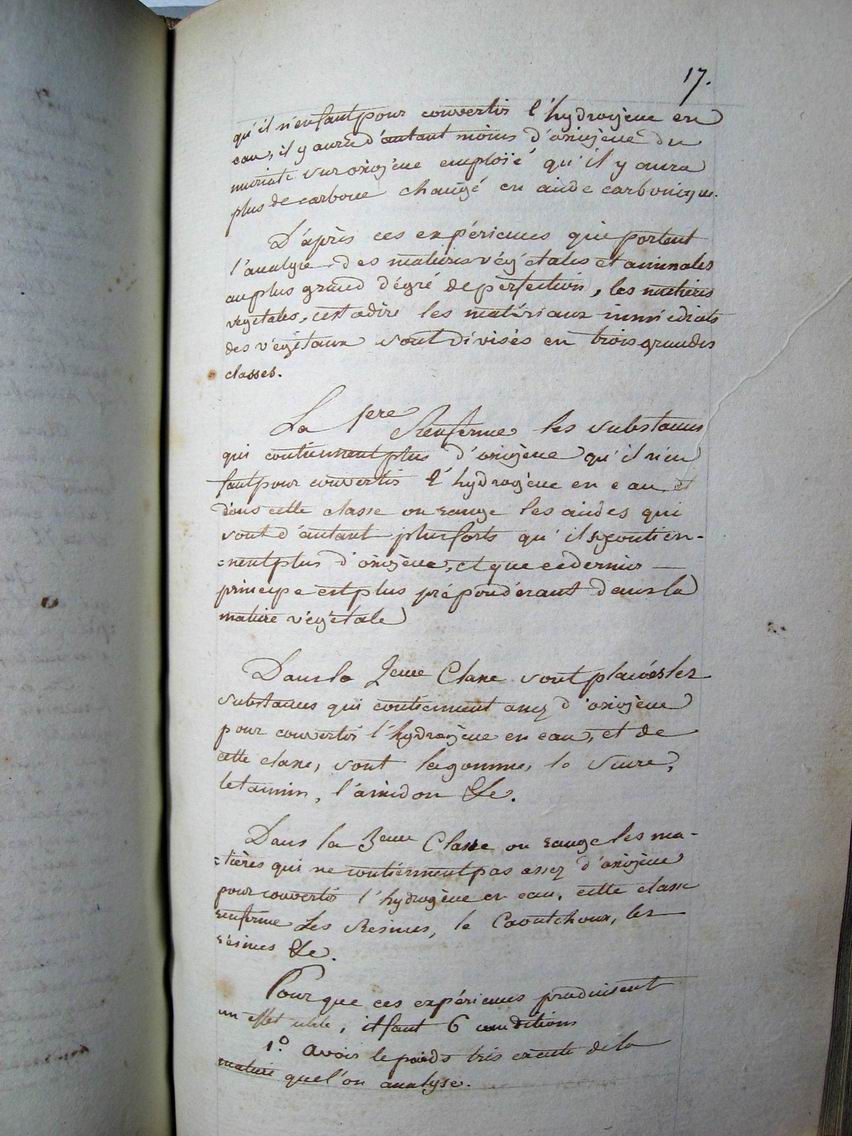 17.
qu'il n'en faut pour convertir l'hydrogène en
eau, il y aura d'autant moins d'oxigène du
muriate suroxigène emploïé qu'il y aura
plus de carbone changé en acide carbonique.
D'après ces expériences qui portent
l'analyse des matieres végétales et animales
au plus grand dégré de perfection, les matieres
végetales, c'est adire les matériaux immédiats
des végétaux sont divisés en trois grandes
classes.
La 1ere Renferme les substances
qui contiennent plus d'oxigène qu'il n'en
faut pour convertir l'hydrogène en eau, et
dans cette classe on range les acides qui
sont d'autant plus forts qu'ils contien-
-nent plus d'oxigène, et que ce dernier
principe est plus prépondérant dans la
matiere végétale
Dans la 2eme Classe sont placés les
substances qui contiennent assez d'oxigène
pour convertir l'hydrogène en eau, et de
cette classe, sont la gomme, le sucre,
le tannin, l'amidon &c.
Dans la 3eme Classe on range les ma-
-tières qui ne contiennent pas assez d'oxigène
pour convertir l'hydrogène en eau, cette classe
renferme Les Resines, le Caoutchoux, les
résines &c.
Pour que ces expériences produisent
un effet utile, il faut 6 conditions
1° avoir le poids très exacte de la
matiere que l'on analyse.